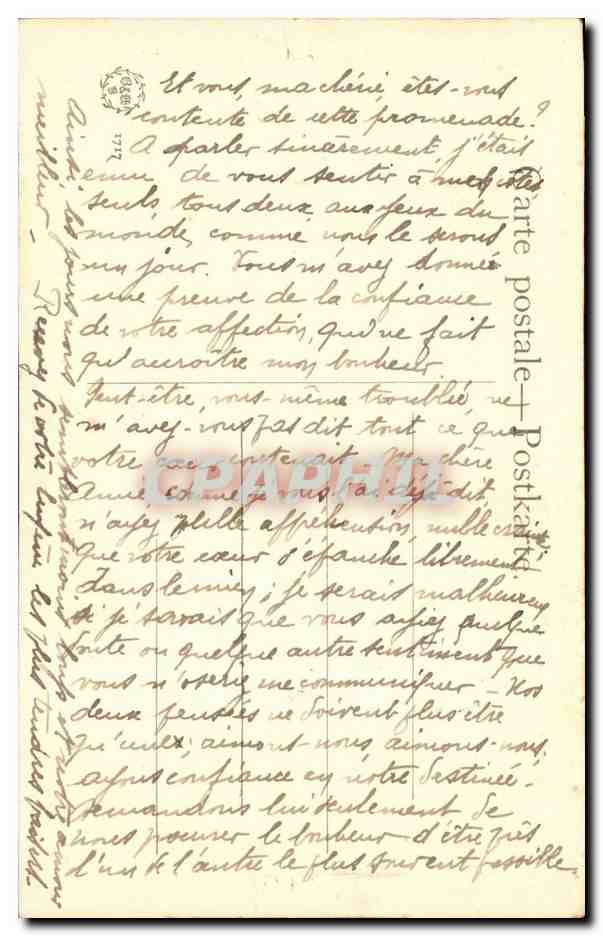 Et vous, ma chérie, êtes-vous
contente de cette promenade?
A parler sincèrement, j'étais
ému de vous sentir à mes côtés
seuls, tous deux, aux yeux du
monde, comme nous le serons
un jour. Vous m'avez donnée
une preuve de la confiance
de votre affection, qui ne fait
qu'accroître mon bonheur.
Peut-être, vous-même troublée, ne
m'avez-vous pas dit tout ce que
votre cœur contenait. Ma chère
Amie, comme je vous l'ai déjà dit,
n'ayez nulle appréhension, nulle crainte
que votre cœur s'épanche librement
dans le mien; je serais malheureux
si je savais que vous ayiez quelque
doute ou quelque autre sentiment que
vous n'oseriez me communiquer - Nos
deux pensées ne doivent plus être
qu'une; aimons-nous, aimons-nous.
ayons confiance en notre destinée.
demandons lui seulement de
nous procurer le bonheur d'être près
l'un de l'autre le plus souvent possible.
Ainsi les jours nous sembleront moins longs et notre amour
meilleur - Recevez de votre les plus tendres baisers.
Carte postale - Postkarte
1717
CPARAMA